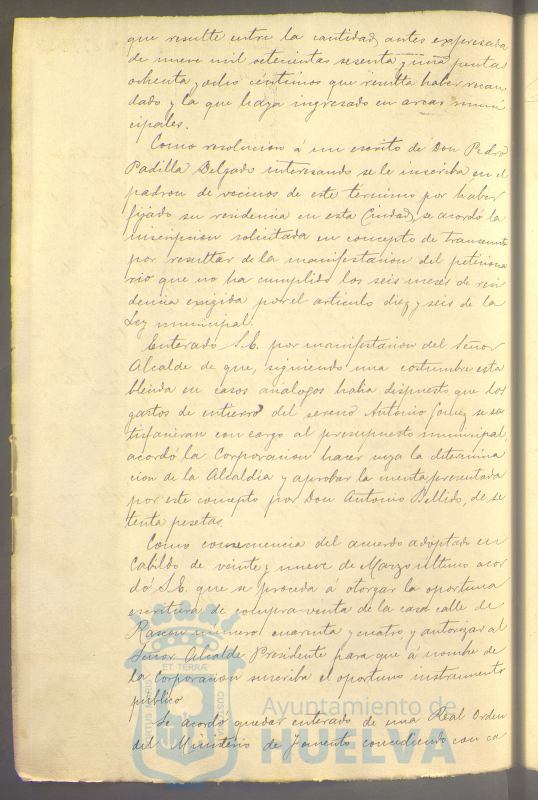 que resulte entre la cantidad antes expresada
de nueve mil setecientas sesenta y una pesetas
ochenta y ocho céntimos que resulta haber recau
dado y la que haya ingresado en arcas muni
cipales.
Como resolucion á un escrito de Don Pedro
Padilla Delgado interesando se le inscriba en el
padron de vecinos de este término por haber
fijado su residencia en esta Ciudad, se acordó la
inscripcion solicitada en concepto de transeunte
por resultar de la manifestacion del peticiona
rio que no ha cumplido los seis meses de resi
dencia exigida por el articulo diez y seis de la
Ley municipal.
Enterado S.E. por manifestacion del Señor
Alcalde de que, siguiendo una costumbre esta
blecida en casos análogos habia dispuesto que los
gastos de entierro del sereno Antonio Gomez se sa
tisfacieran con cargo al presupuesto municipal,
acordó la Corporacion hacer suya la determina
cion de la Alcaldía y aprobar la cuenta presentada
por este concepto por Don Antonio Bellido, de se
tenta pesetas.
Como consecuencia del acuerdo adoptado en
Cabildo de veinte y nueve de Marzo ultimo acor
dó S.E. que se proceda á otorgar la oportuna
escritura de compra-venta de la casa calle de
Rascon número cuarenta y cuatro, y autorizar al
Señor Alcalde Presidente para que á nombre de
la Corporacion suscriba el oportuno instrumento
público
Se acordó quedar enterado de una Real Orden
del Ministerio de Fomento concediendo con ca
Ayuntamiento de
HUELVA
ET TERRÆ
PORTUS MARIS
CUSTODIA